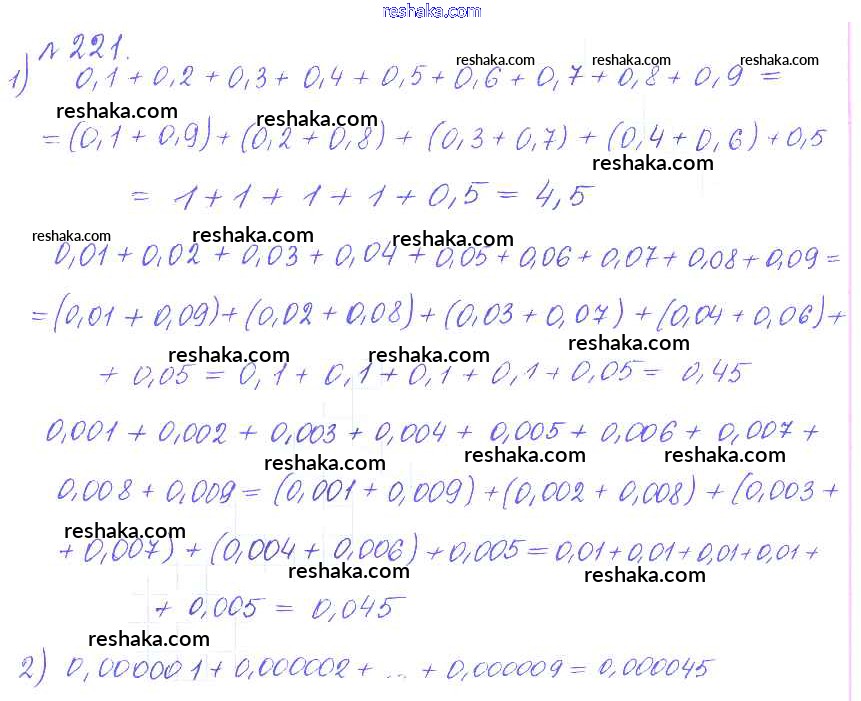 reshaka.com
№ 221.
1) 0,1 + 0,2 + 0,3 + 0,4 + 0,5 + 0,6 + 0,7 + 0,8 + 0,9 =
reshaka.com reshaka.com reshaka.com
reshaka.com reshaka.com
= (0,1 + 0,9) + (0,2 + 0,8) + (0,3 + 0,7) + (0,4 + 0,6) + 0,5
reshaka.com
= 1 + 1 + 1 + 1 + 0,5 = 4,5
reshaka.com reshaka.com reshaka.com
0,01 + 0,02 + 0,03 + 0,04 + 0,05 + 0,06 + 0,07 + 0,08 + 0,09 =
= (0,01 + 0,09) + (0,02 + 0,08) + (0,03 + 0,07) + (0,04 + 0,06) +
reshaka.com reshaka.com reshaka.com
+ 0,05 = 0,1 + 0,1 + 0,1 + 0,1 + 0,05 = 0,45
0,001 + 0,002 + 0,003 + 0,004 + 0,005 + 0,006 + 0,007 +
reshaka.com reshaka.com reshaka.com
0,008 + 0,009 = (0,001 + 0,009) + (0,002 + 0,008) + (0,003 +
reshaka.com
+ 0,007) + (0,004 + 0,006) + 0,005 = 0,01 + 0,01 + 0,01 + 0,01 +
reshaka.com reshaka.com
+ 0,005 = 0,045
reshaka.com
2) 0,000001 + 0,000002 + ... + 0,000009 = 0,000045